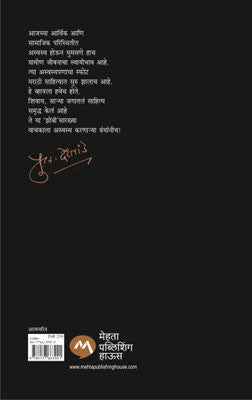 आजच्या आर्थिक आणि
सामाजिक परिस्थितीत
अस्वस्थ होऊन घुमसणे हाच
ग्रामीण जीवनाचा स्थायीभाव आहे.
त्या अस्वस्थपणाचा स्फोट
मराठी साहित्यात सुरु झालाच आहे.
हे व्हायला हवेच होते.
शिवाय, साऱ्या जगातलं साहित्य
समृद्ध केलं आहे
ते या 'झोंबी'सारख्या
वाचकाला अस्वस्थ करणाऱ्या ग्रंथांनीच!
आत्मचरित्र
मेहता
पब्लिशिंग
हाऊस
www.mehtapublishinghouse.com